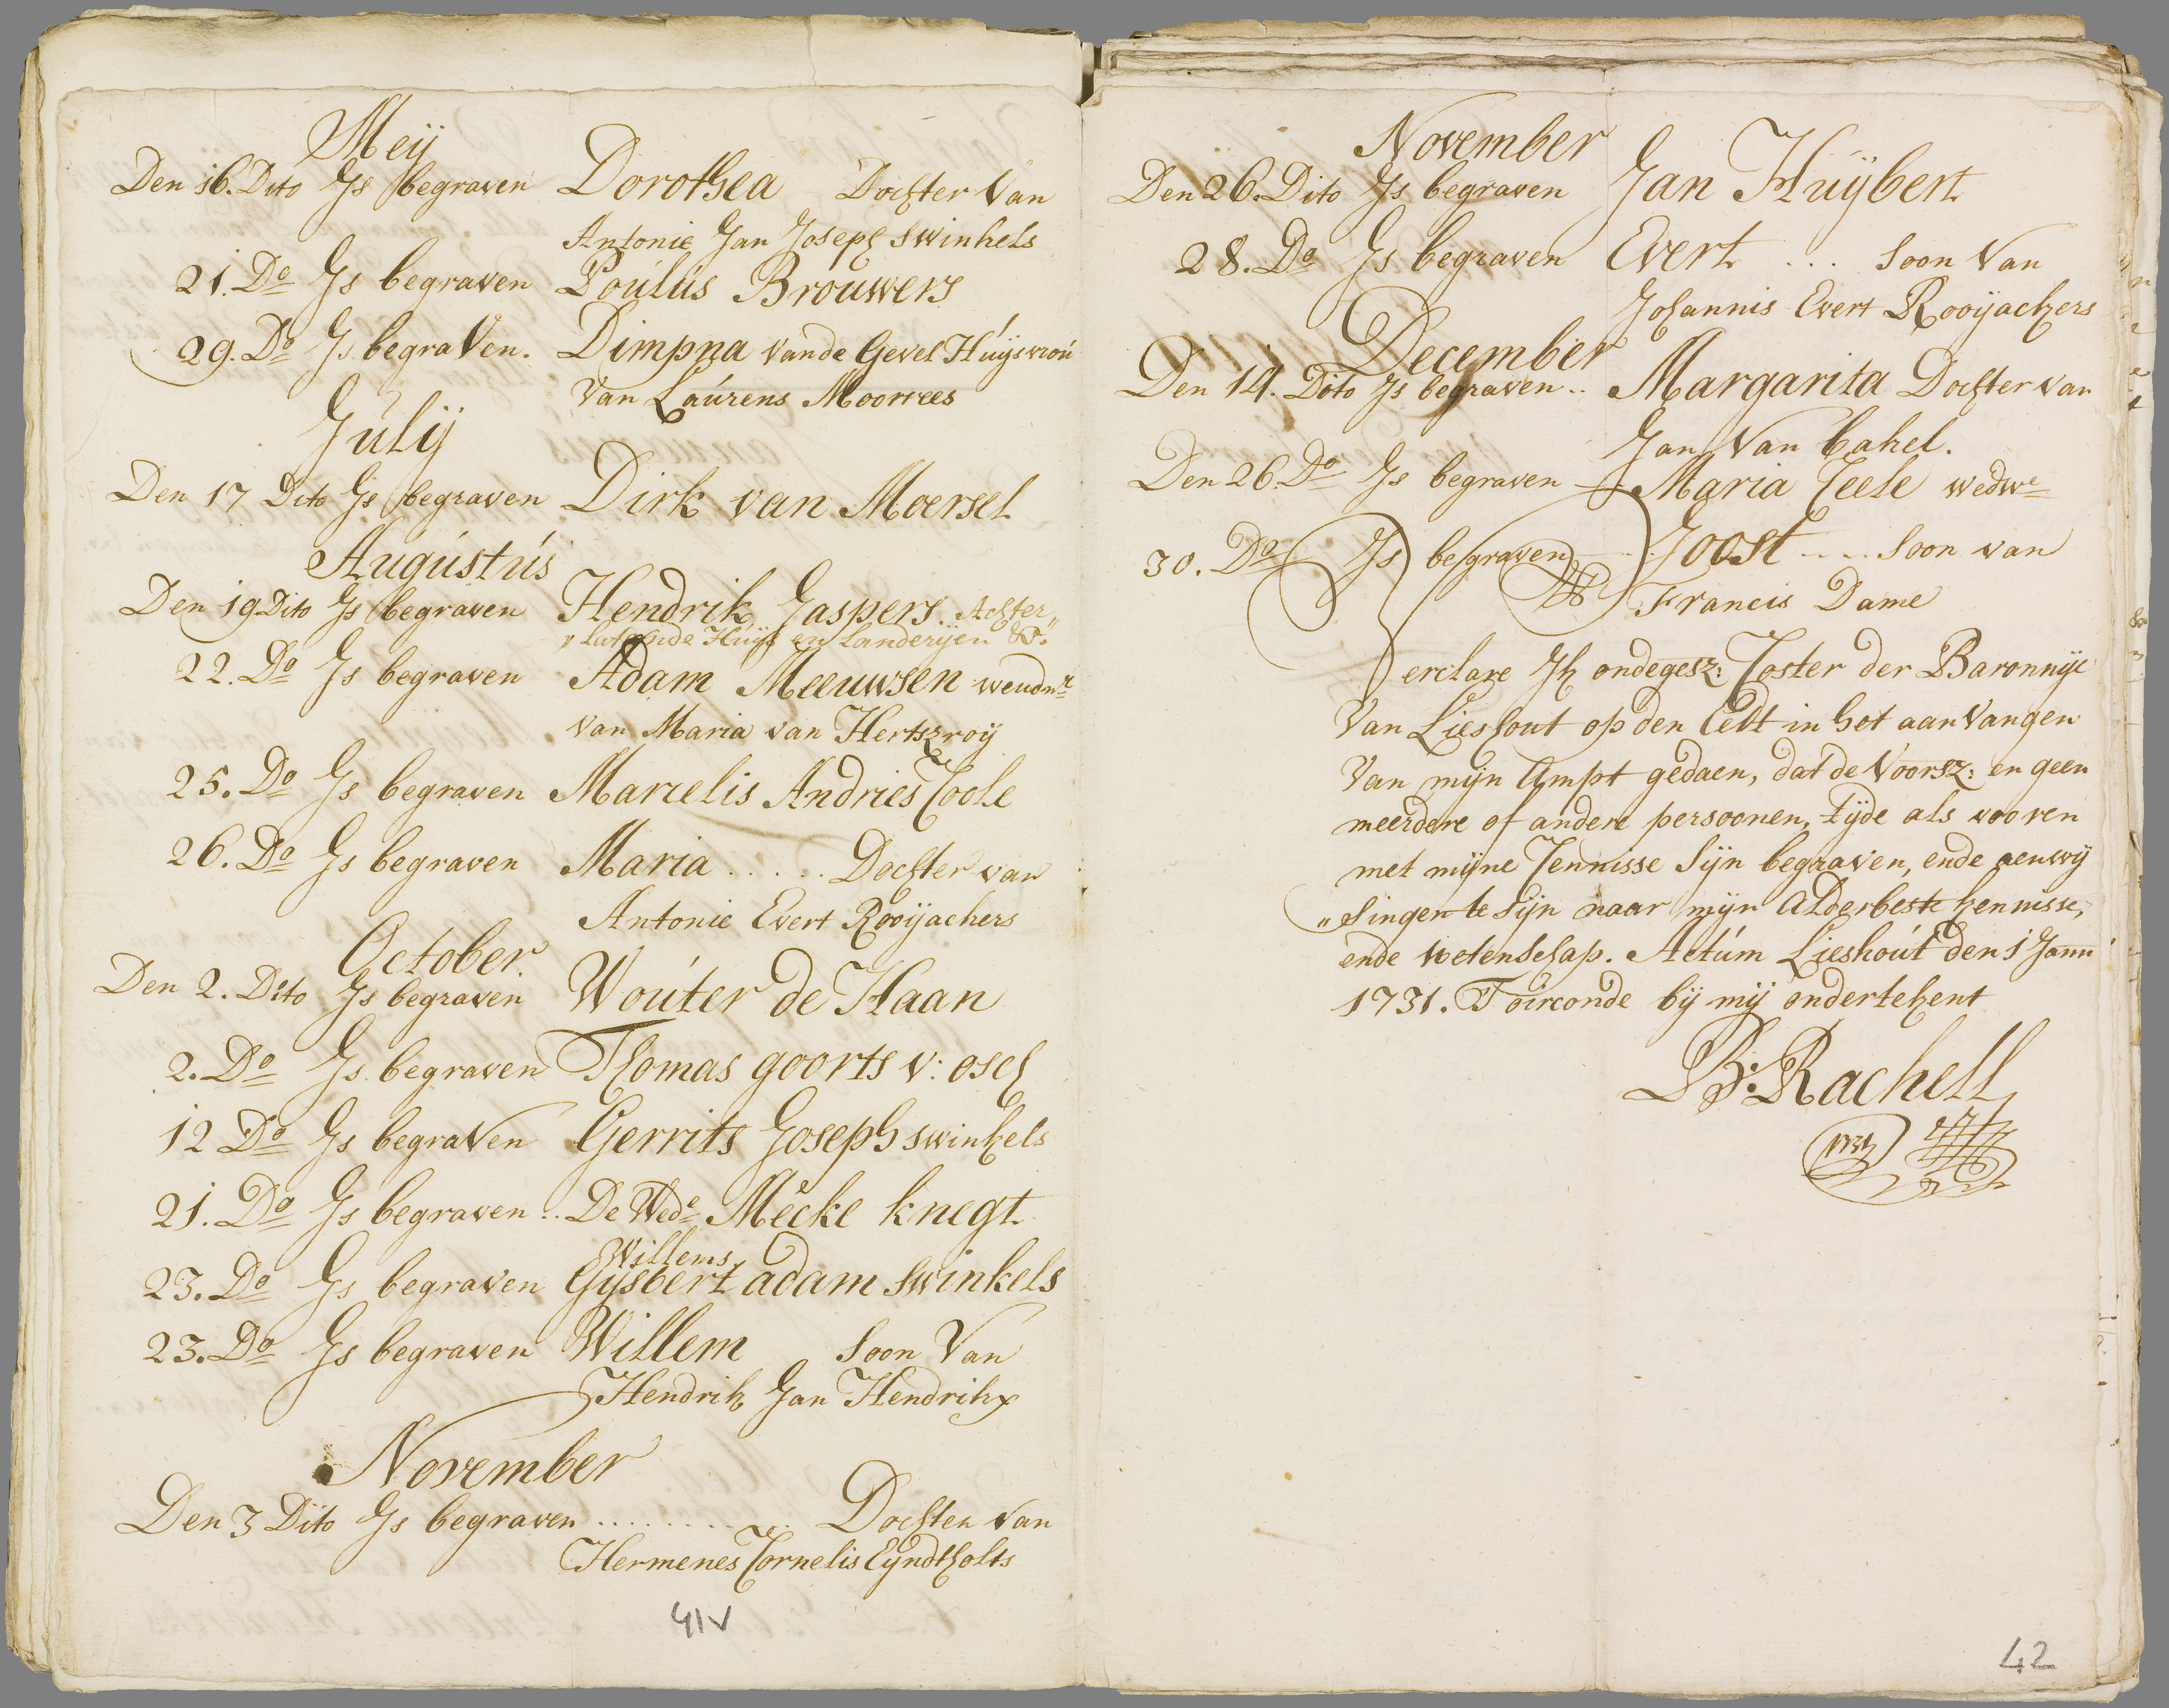 Meÿ
Den 16. Dito Is begraven Dorothea Dochter Van
Antonie Jan Joseph Swinkels
21. Do Is begraven Poulus Brouwers
29. Do Is begraven. Dimpna vande Gevel Huÿsvrou
Van Laurens Moorrees
Julÿ
Den 17 Dito Is begraven Dirk van Moersel
Augustus
Den 19 Dito Is begraven Hendrik Jaspers. Achter„
„latende Huÿs en Landerÿen &c.
22. Do Is begraven Adam Meeuwsen weudnr
van Maria van Hertszroÿ
25. Do Is begraven Marcelis Andries Coole
26. Do Is begraven Maria ..... Dochter van
Antonie Evert Rooÿackers
October.
Den 2. Dito Is begraven Wouter de Haan
2. Do Is begraven Thomas goorts v: osch
12 Do Is begraven Gerrits Joseph swinkels
21. Do Is begraven .. De Wede Mecke knegt
Willems
23. Do Is begraven Gysbert adam Swinkels
23. Do Is begraven Willem Soon Van
Hendrik Jan Hendrikx
November
Den 3 Dito Is begraven .......... Dochter van
Hermenes Cornelis Eyndtholts
41v
November
Den 26. Dito Is begraven Jan Huÿbert
28. Do Is begraven Evert ... Soon Van
Johannis Evert Rooÿackers
December
Den 14. Dito Is begraven .. Margarita Dochter van
Jan Van Bakel.
Den 26. Do Is begraven Maria Ceele wedwe
30. Do Is begraven Joost .... Soon van
Francis Dame
Verclare Ik ondegesz: Coster der Baronnÿe
Van Lieshout op den Eedt in het aanvangen
Van mÿn Ampt gedaen, dat de Voorsz: en geen
meerdere of andere persoonen, tÿde als vooren
met mÿne Cennisse Sÿn begraven, ende aenwÿ
„singen te Sÿn naar mÿn alderbeste kennisse,
ende wetenschap. Actum Lieshout den 1 Janu
1731. Toirconde bÿ mÿ ondertekent
B: Rachell
1731
42